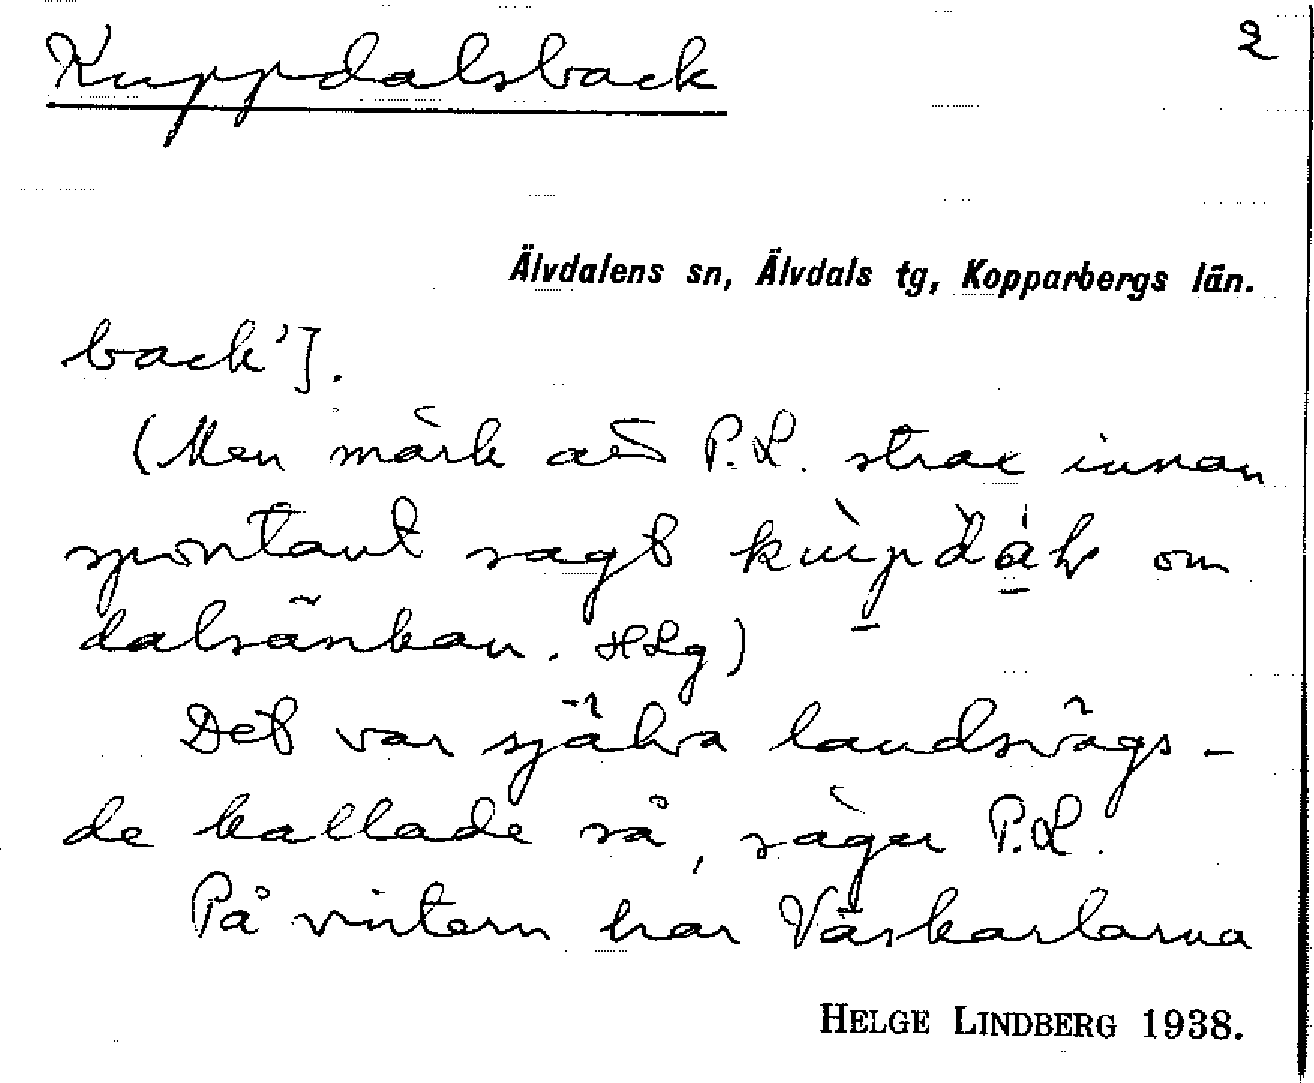 Kuppdalsback 2
Älvdalens sn, Älvdals tg, Kopparbergs län.
back'].
(Men märk att P.L. strax innan
spontant sagt om
dalsänkan. HLg)
Det var själva landsvägs-
de kallade så, säger P.L.
På vintern har Väskarlarna
HELGE LINDBERG 1938.